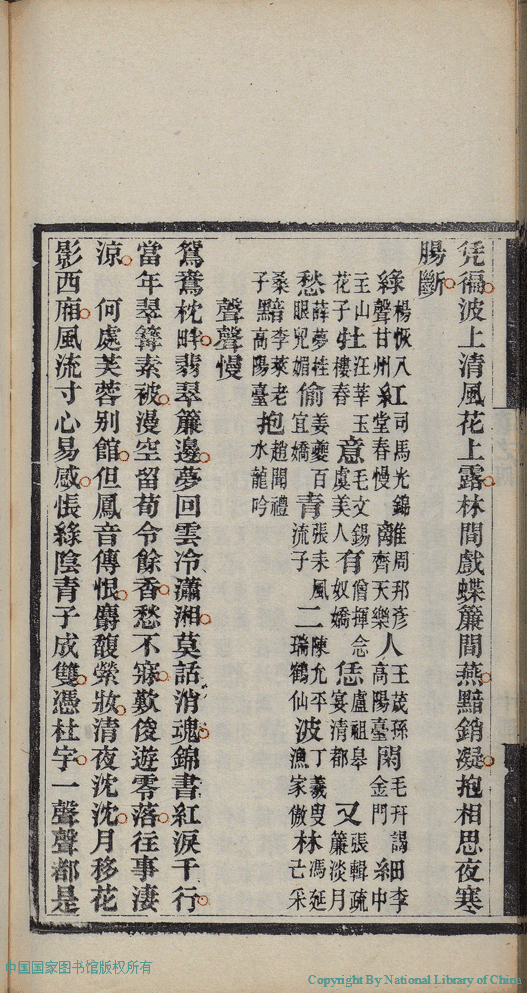 凭徧波上清風花上露林間戲蝶簾間燕黯銷凝抱相思夜寒
腸斷
綠楊恢八聲甘州紅司馬光錦堂春慢離周邦彥齊天樂人王茂孫高陽臺閑毛幵謁金門細李中
主山花子牡汪莘玉樓春意毛文錫虞美人有僧揮念奴嬌恁盧祖皋宴清都又張輯疏簾淡月
愁薛夢桂眼兒媚偷姜夔百宜嬌青張耒風流子二陳允平瑞鶴仙波丁羲叟漁家傲林馮延巳采
桑子黯李萊老高陽臺抱趙聞禮水龍吟
聲聲慢
鴛鴦枕畔翡翠簾邊夢回雲冷瀟湘莫話消魂錦書紅淚千行
當年翠簹素被漫空留荀令餘香愁不寐歎俊遊零落往事淒
涼　何處芙蓉別館但鳳音傳恨麝馥縈妝清夜沈沈月移花
影西廂風流寸心易感悵綠陰青子成雙憑杜宇一聲聲都是
中国国家图书馆版权所有
Copyright By National Library of China